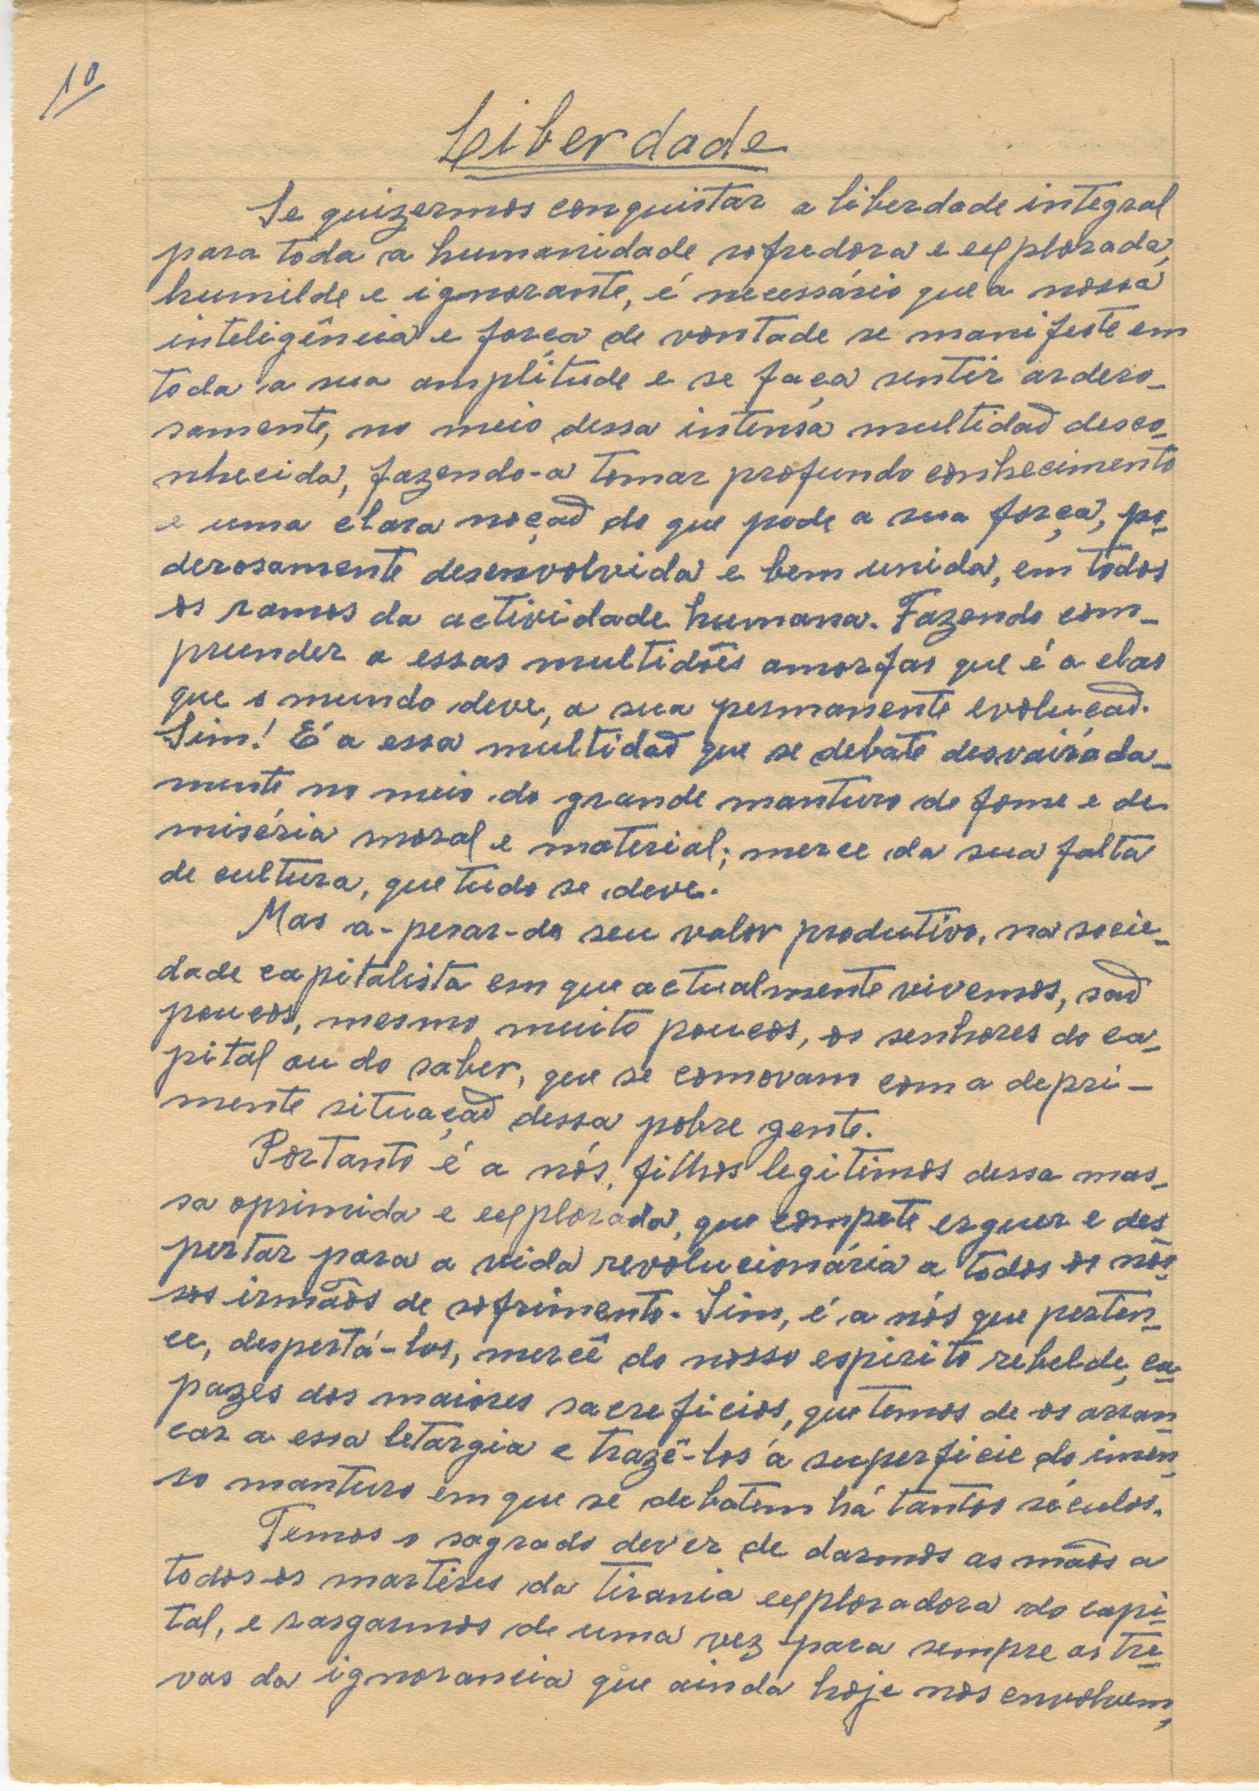 10
Liberdade
Se quizermos conquistar a liberdade integral
para toda a humanidade sofredora e explorada,
humilde e ignorante, é necessário que a nossa
inteligência e força de vontade se manifeste em
toda a sua amplitude e se faça sentir ardero-
samente, no meio dessa intensa multidaõ desco-
nhecida, fazendo-a tomar profundo conhecimento
e uma clara noçaõ do que pode a sua força, po-
derosamente desenvolvida e bem unida, em todos
os ramos da actividade humana. Fazendo com-
prender a essas multidões amorfas que é a elas
que o mundo deve, a sua permanente evoluçaõ.
Sim! É a essa multidaõ que se debate desvairada-
mente no meio do grande manturo de fome e de
miséria moral e material; merce da sua falta
de cultura, que tudo se deve.
Mas a-pesar-do seu valor produtivo, na socie-
dade capitalista em que actualmente vivemos, saõ
poucos, mesmo muito poucos, os senhores do ca-
pital ou do saber, que se comovam com a depri-
mente situaçaõ dessa pobre gente.
Portanto é a nós, filhos legitimos dessa mas-
sa oprimida e explorada, que compete erguer e des
pertar para a vida revolucionária a todos os nos-
sos irmãos de sofrimento. Sim, é a nós que perten-
ce, despertá-los, mercê do nosso espirito rebelde, ca-
pazes dos maiores sacreficios, que temos de os arran
car a essa letargia e trazê-los á superficie do imen-
so manturo em que se debatem há tantos séculos.
Temos o sagrado dever de darmos as mãos a
todos os martires da tirania exploradora do capi-
tal, e rasgarmos de uma vez para sempre as tre-
vas da ignorancia que ainda hoje nos envolvem,